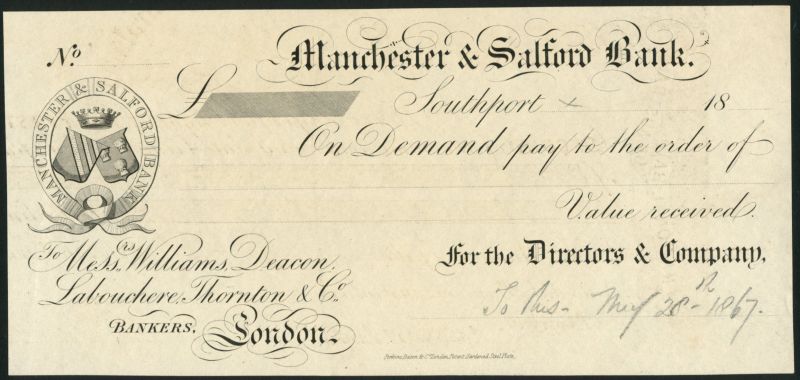 No.
Manchester & Salford Bank.
MANCHESTER & SALFORD BANK
£
Southport 18
On Demand pay to the order of
Value received.
To Messrs. Williams, Deacon,
Labouchere, Thornton & Co.
BANKERS, London.
For the Directors & Company,
May 28th 1867.
Perkins, Bacon & Co. London, Patent Hardened Steel Plate.